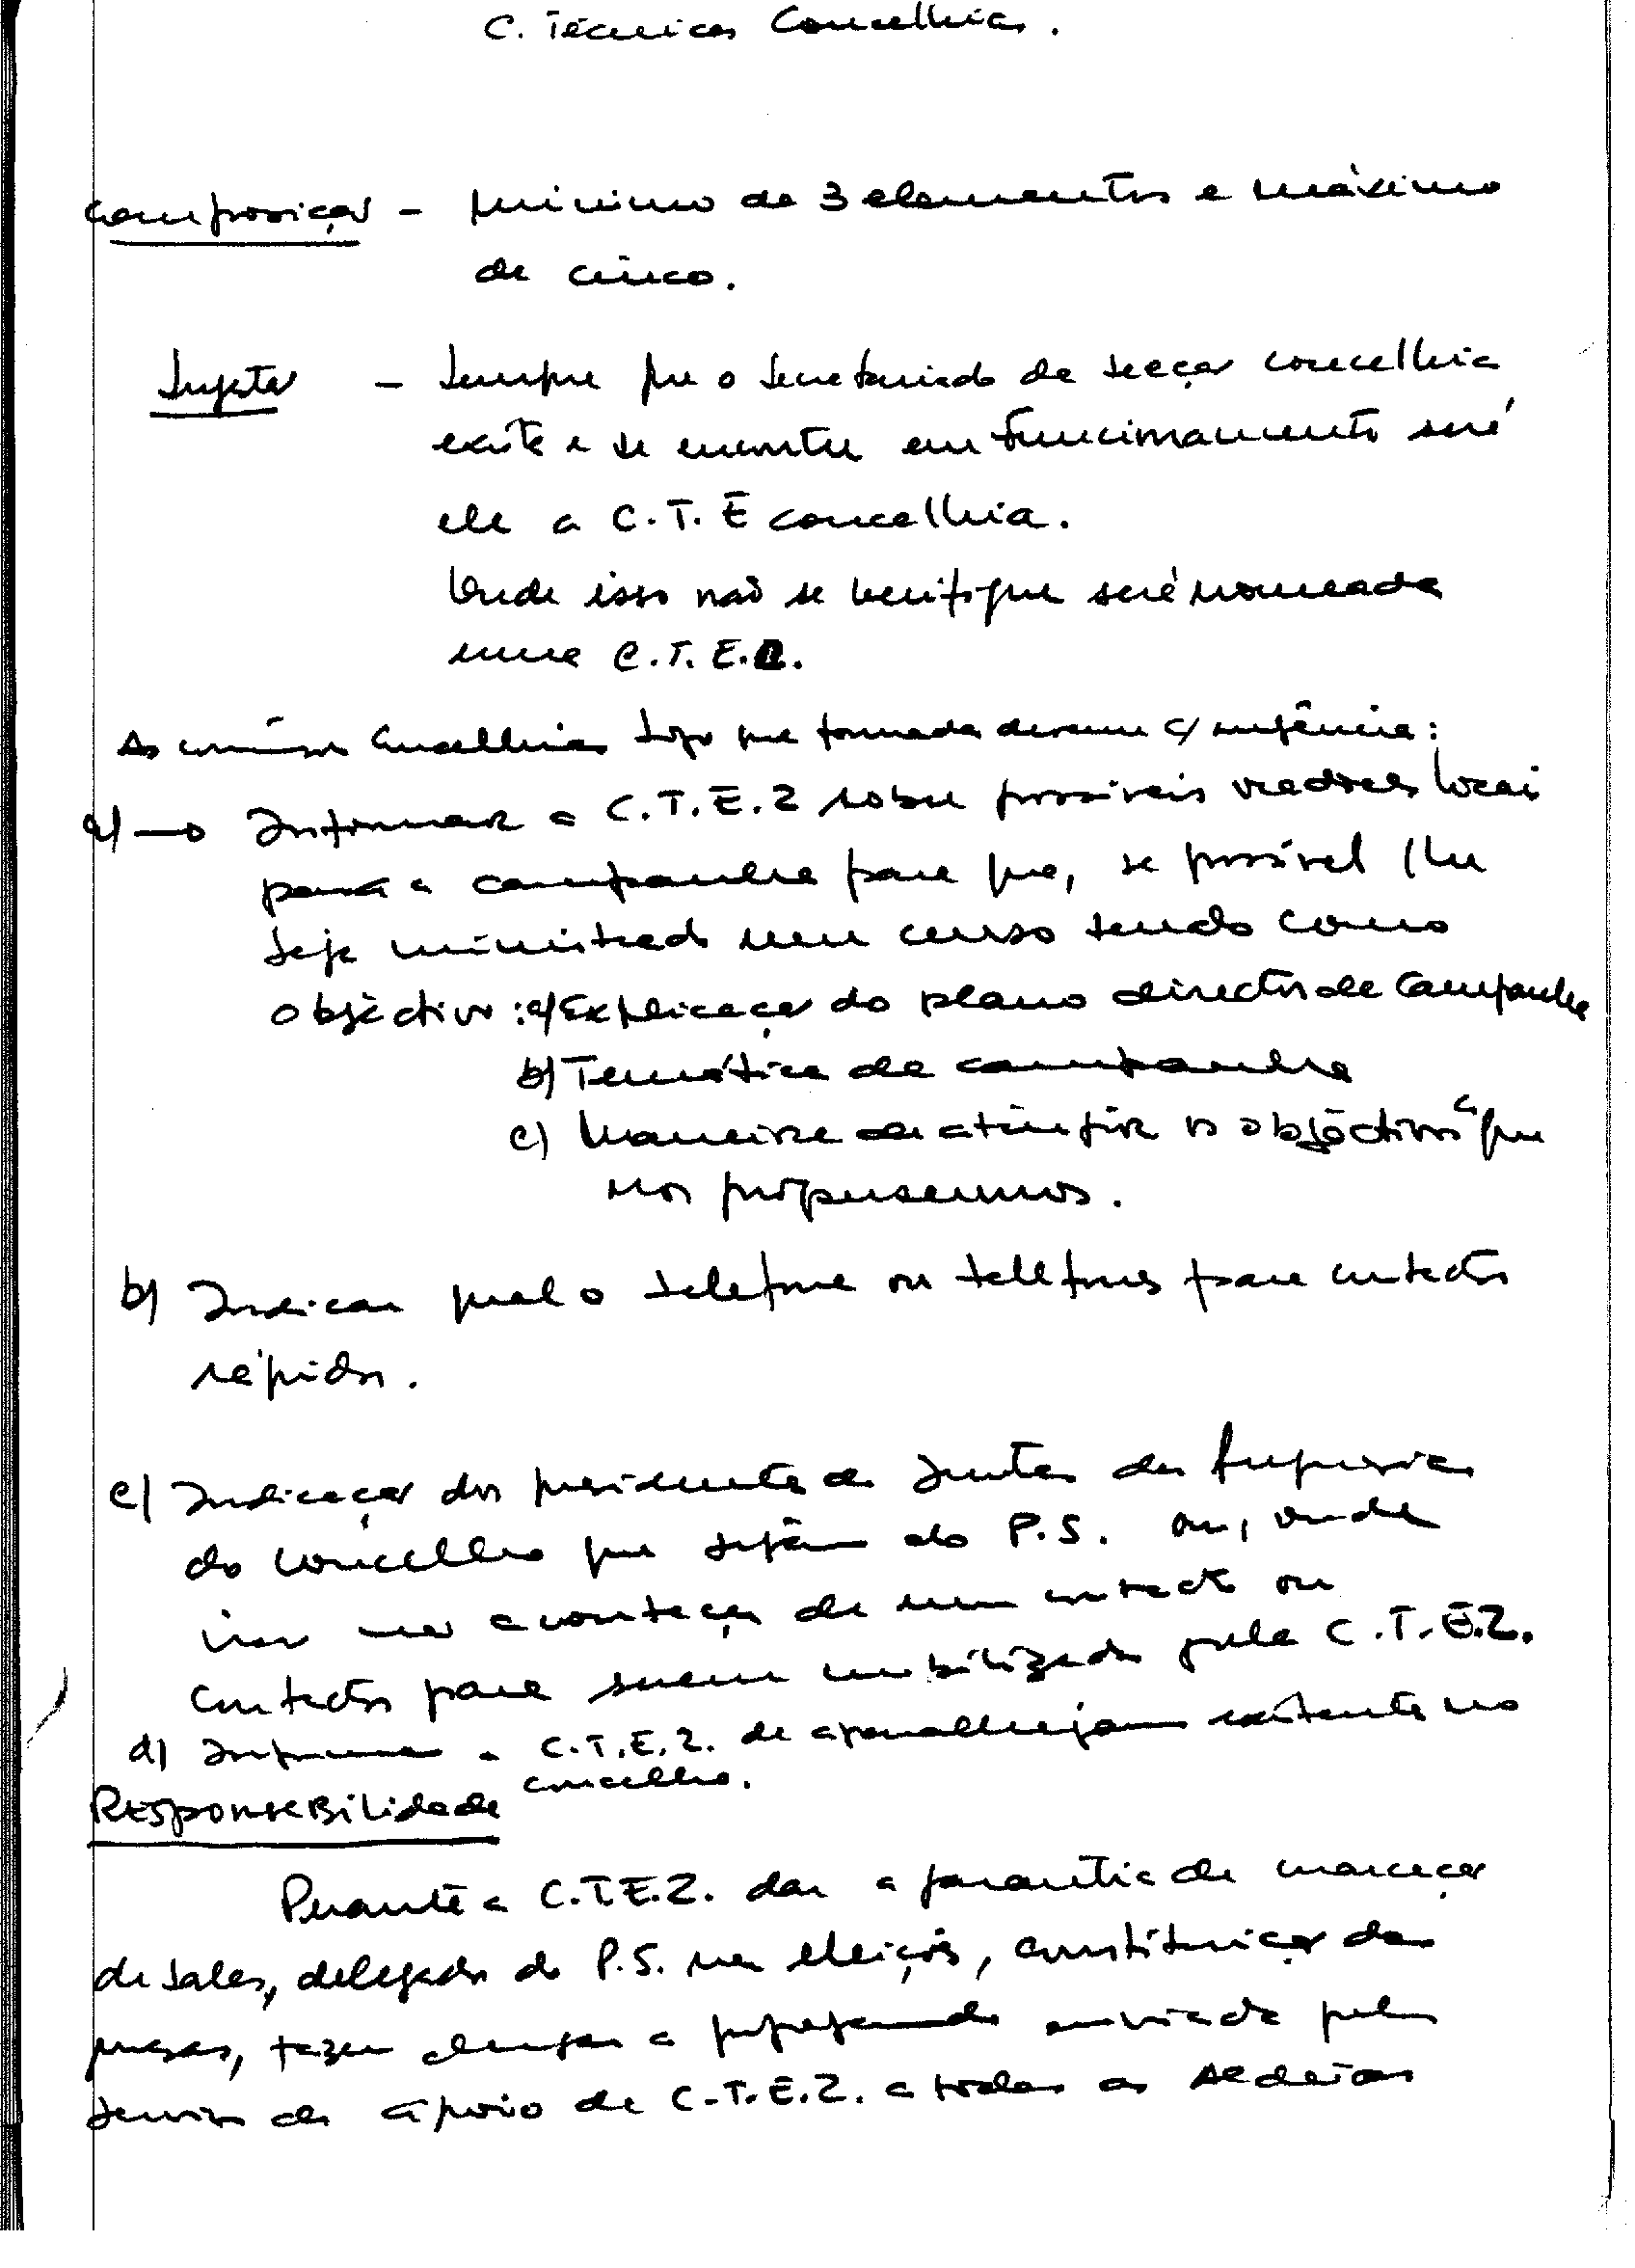 C. Técnicas Concelhias.
Composição - Mínimo de 3 elementos e máximo
de cinco.
Sujeito - Sempre que o Secretariado da Secção concelhia
exista e se encontre em funcionamento será
ele a C.T.E concelhia.
Onde isso não se verifique será nomeada
uma C.T.E.
As comissões Concelhias logo que formadas devem c/ urgência:
a) Informar a C.T.E.Z sobre possíveis oradores locais
para a campanha para que, se possível lhe
seja ministrado um curso tendo como
objectivo: a) Explicação do plano director de Campanha
b) Temática de campanha
c) Maneira de atingir os objectivos a que
nos propusemos.
b) Indicar qual o telefone ou telefones para contactos
rápidos.
c) Indicação dos presidentes de Juntas de freguesias
do concelho que sejam do P.S. ou, onde
isso não aconteça de um contacto ou
contactos para serem mobilizados pela C.T.E.Z.
d) Informar a C.T.E.Z. de aparelhagem existente no
concelho.
Responsabilidade
Perante a C.T.E.Z. dar a garantia de marcação
de salas, delegados do P.S. nas eleições, constituição das
mesas, fazer chegar a propaganda enviada pelos
serviços de apoio da C.T.E.Z. a todas as Aldeias